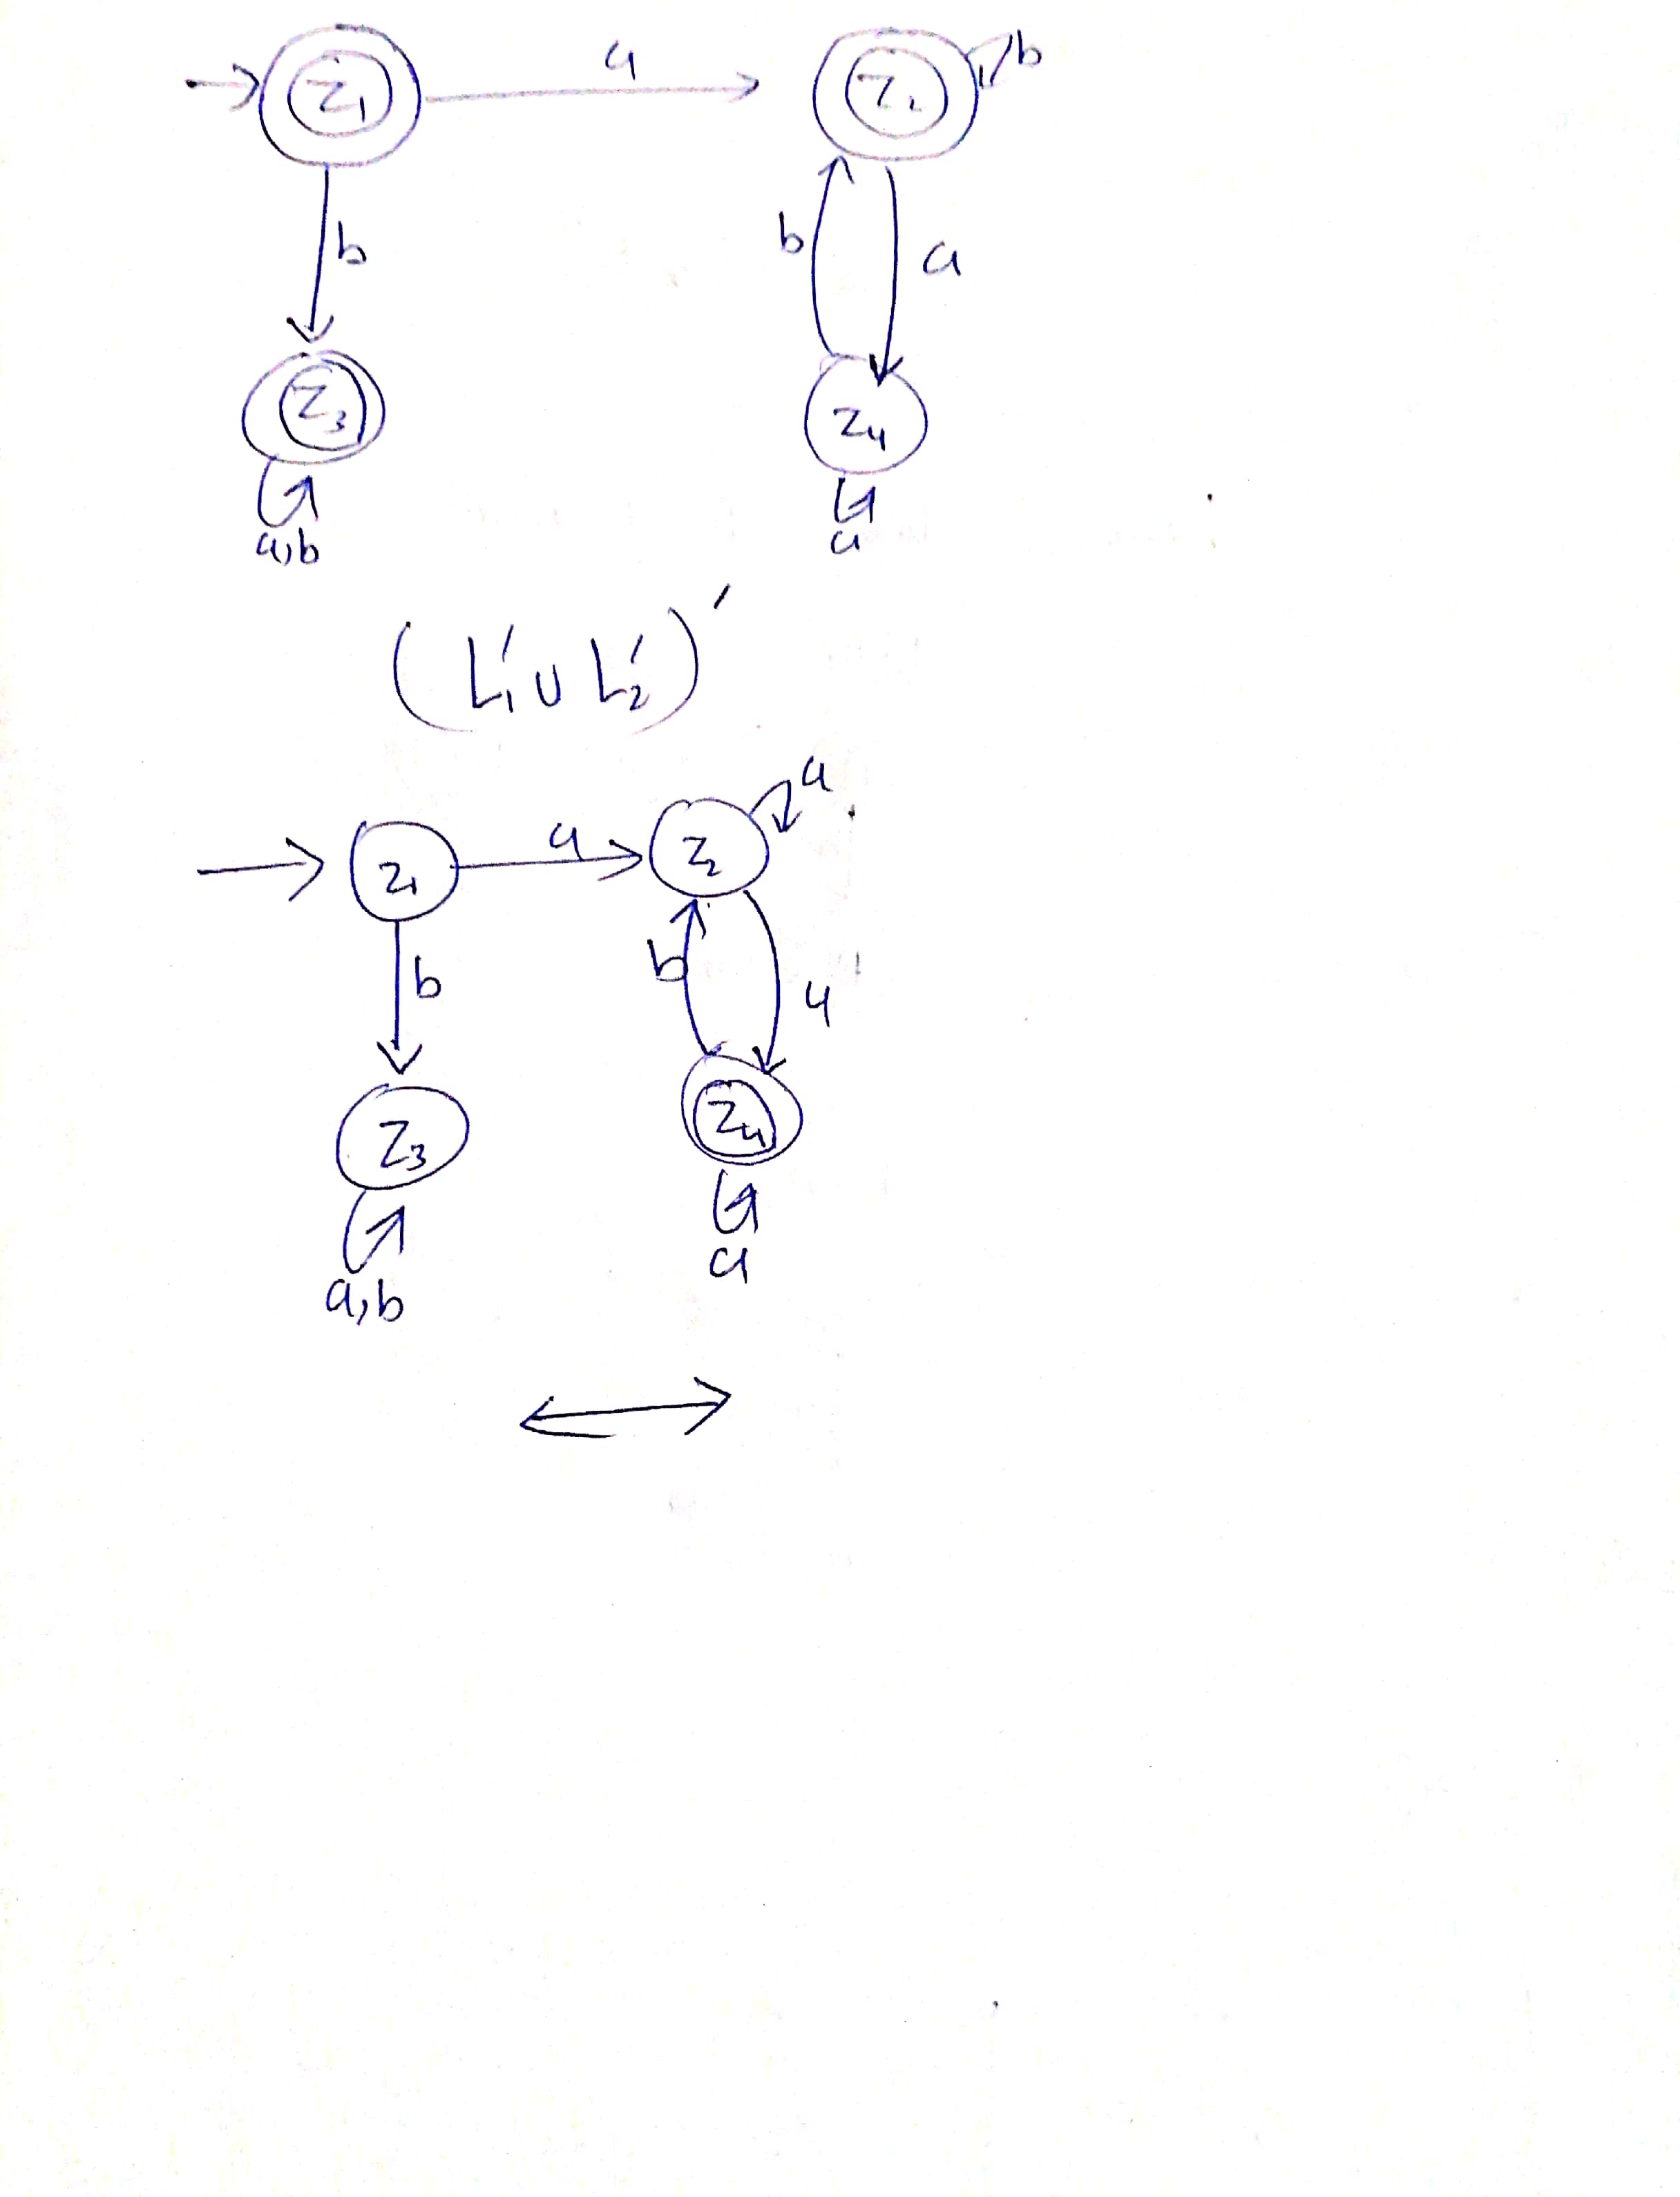 a
Z₁ Z₂ b
b b a
Z₃ Z₄
a,b a
(L₁′ ∪ L₂′)′
a
Z₁ a Z₂
b b a
Z₃ Z₄
a,b a